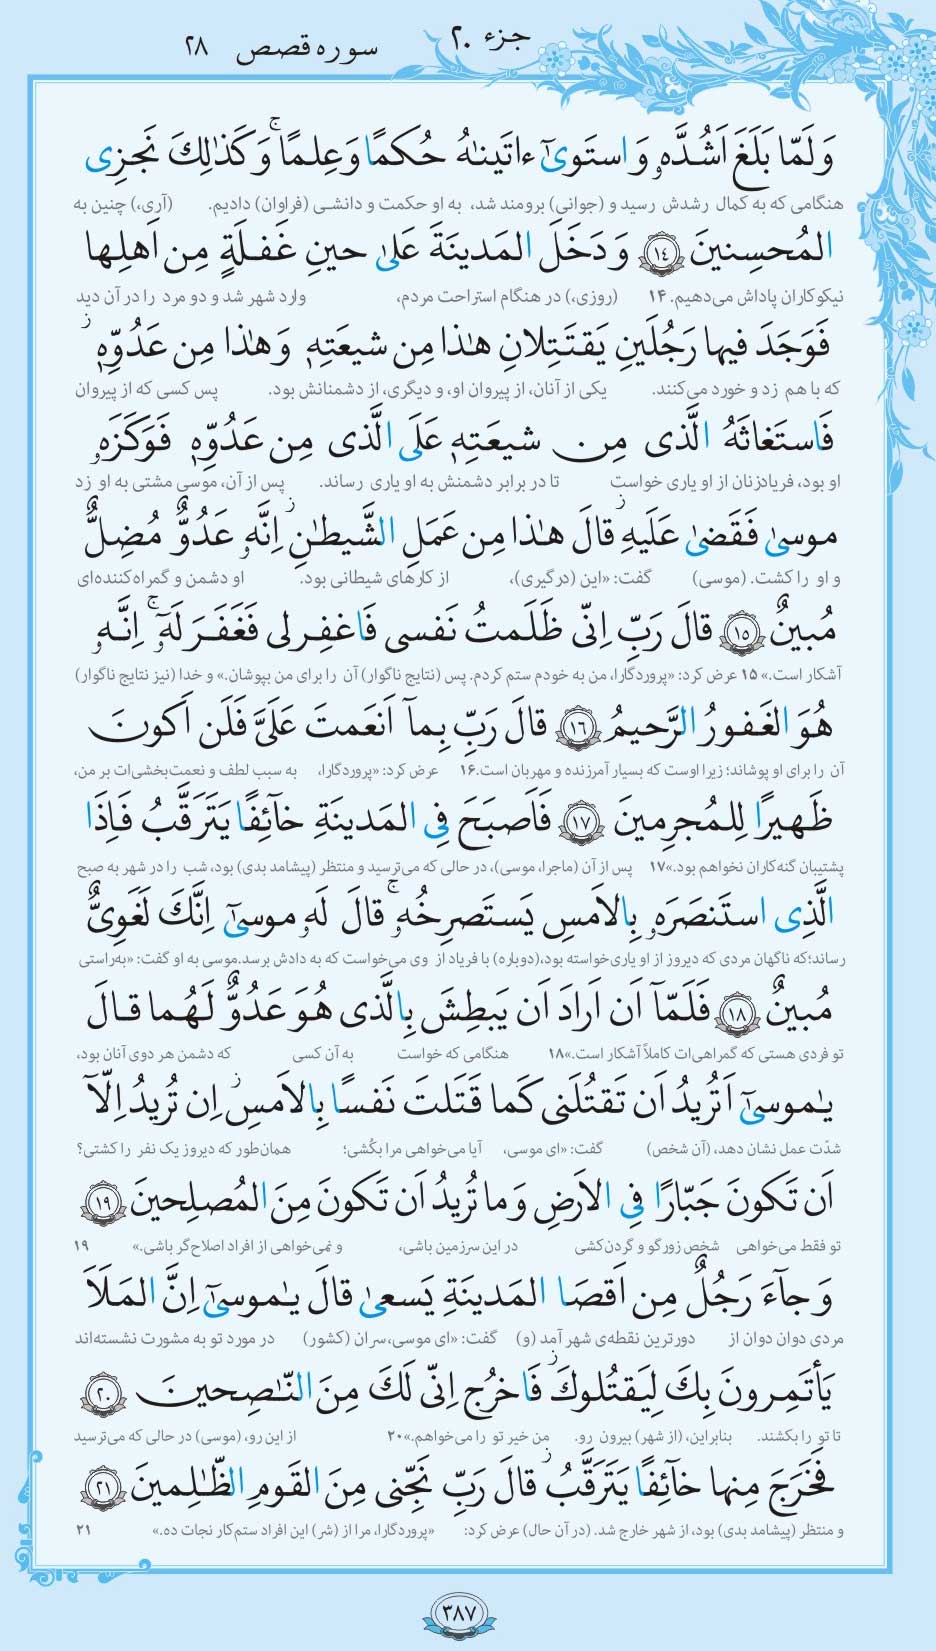 جزء ۲۰
سوره قصص ۲۸
وَلَمّا بَلَغَ اَشُدَّهٗ وَاستَوىٰٓ ءاتَينٰهُ حُكمًا وَعِلمًاۚ وَكَذٰلِكَ نَجزِى
هنگامی که به کمال رشدش رسید و (جوانی) برومند شد، به او حکمت و دانشی (فراوان) دادیم. (آری،) چنین به
المُحسِنينَ ﴿۱۴﴾ وَدَخَلَ المَدينَةَ عَلىٰ حينِ غَفلَةٍ مِن اَهلِها
نیکوکاران پاداش می‌دهیم. ۱۴ (روزی،) در هنگام استراحت مردم، وارد شهر شد و دو مرد را در آن دید
فَوَجَدَ فيها رَجُلَينِ يَقتَتِلانِ هٰذا مِن شيعَتِهٖ وَهٰذا مِن عَدُوِّهٖۖ
که با هم زد و خورد می‌کنند. یکی از آنان، از پیروان او، و دیگری، از دشمنانش بود. پس کسی که از پیروان
فَاستَغاثَهُ الَّذى مِن شيعَتِهٖ عَلَى الَّذى مِن عَدُوِّهٖ فَوَكَزَهٗ
او بود، فریادزنان از او یاری خواست تا در برابر دشمنش به او یاری رساند. پس از آن، موسی مشتی به او زد
موسىٰ فَقَضىٰ عَلَيهِۖ قالَ هٰذا مِن عَمَلِ الشَّيطٰنِۖ اِنَّهٗ عَدُوٌّ مُضِلٌّ
و او را کشت. (موسی) گفت: «این (درگیری)، از کارهای شیطانی بود. او دشمن و گمراه‌کننده‌ای
مُبينٌ ﴿۱۵﴾ قالَ رَبِّ اِنّى ظَلَمتُ نَفسى فَاغفِرلى فَغَفَرَ لَهٗٓۚ اِنَّهٗ
آشکار است.» ۱۵ عرض کرد: «پروردگارا، من به خودم ستم کردم. پس (نتایج ناگوار) آن را برای من بپوشان.» و خدا (نیز نتایج ناگوار)
هُوَ الغَفورُ الرَّحيمُ ﴿۱۶﴾ قالَ رَبِّ بِمآ اَنعَمتَ عَلَىَّ فَلَن اَكونَ
آن را برای او پوشاند؛ زیرا اوست که بسیار آمرزنده و مهربان است.۱۶ عرض کرد: «پروردگارا، به سبب لطف و نعمت‌بخشی‌ات بر من،
ظَهيرًا لِلمُجرِمينَ ﴿۱۷﴾ فَاَصبَحَ فِى المَدينَةِ خآئِفًا يَتَرَقَّبُ فَاِذَا
پشتیبان گنه‌کاران نخواهم بود.»۱۷ پس از آن (ماجرا، موسی)، در حالی که می‌ترسید و منتظر (پیشامد بدی) بود، شب را در شهر به صبح
الَّذِى استَنصَرَهٗ بِالاَمسِ يَستَصرِخُهٗۚ قالَ لَهٗ موسىٰٓ اِنَّكَ لَغَوِىٌّ
رساند؛که ناگهان مردی که دیروز از او یاری‌خواسته بود،(دوباره) با فریاد از وی می‌خواست که به دادش برسد.موسی به او گفت: «به‌راستی
مُبينٌ ﴿۱۸﴾ فَلَمّآ اَن اَرادَ اَن يَبطِشَ بِالَّذى هُوَ عَدُوٌّ لَهُما قالَ
تو فردی هستی که گمراهی‌ات کاملاً آشکار است.»۱۸ هنگامی که خواست به آن کسی که دشمن هر دوی آنان بود،
يٰموسىٰٓ اَتُريدُ اَن تَقتُلَنى كَما قَتَلتَ نَفسًا بِالاَمسِۖ اِن تُريدُ اِلّآ
شدّت عمل نشان دهد، (آن شخص) گفت: «ای موسی، آیا می‌خواهی مرا بکُشی؛ همان‌طور که دیروز یک نفر را کشتی؟
اَن تَكونَ جَبّارًا فِى الاَرضِ وَما تُريدُ اَن تَكونَ مِنَ المُصلِحينَ ﴿۱۹﴾
تو فقط می‌خواهی شخص زورگو و گردن‌کشی در این سرزمین باشی، و نمی‌خواهی از افراد اصلاح‌گر باشی.» ۱۹
وَجآءَ رَجُلٌ مِن اَقصَا المَدينَةِ يَسعىٰ قالَ يٰموسىٰٓ اِنَّ المَلَاَ
مردی دوان دوان از دورترین نقطه‌ی شهر آمد (و) گفت: «ای موسی،سران (کشور) در مورد تو به مشورت نشسته‌اند
يَأتَمِرونَ بِكَ لِيَقتُلوكَۖ فَاخرُج اِنّى لَكَ مِنَ النّٰصِحينَ ﴿۲۰﴾
تا تو را بکشند. بنابراین، (از شهر) بیرون رو. من خیر تو را می‌خواهم.»۲۰ از این رو، (موسی) در حالی که می‌ترسید
فَخَرَجَ مِنها خآئِفًا يَتَرَقَّبُۖ قالَ رَبِّ نَجِّنى مِنَ القَومِ الظّٰلِمينَ ﴿۲۱﴾
و منتظر (پیشامد بدی) بود، از شهر خارج شد. (در آن حال) عرض کرد: «پروردگارا، مرا از (شر) این افراد ستم‌کار نجات ده.» ۲۱
۳۸۷